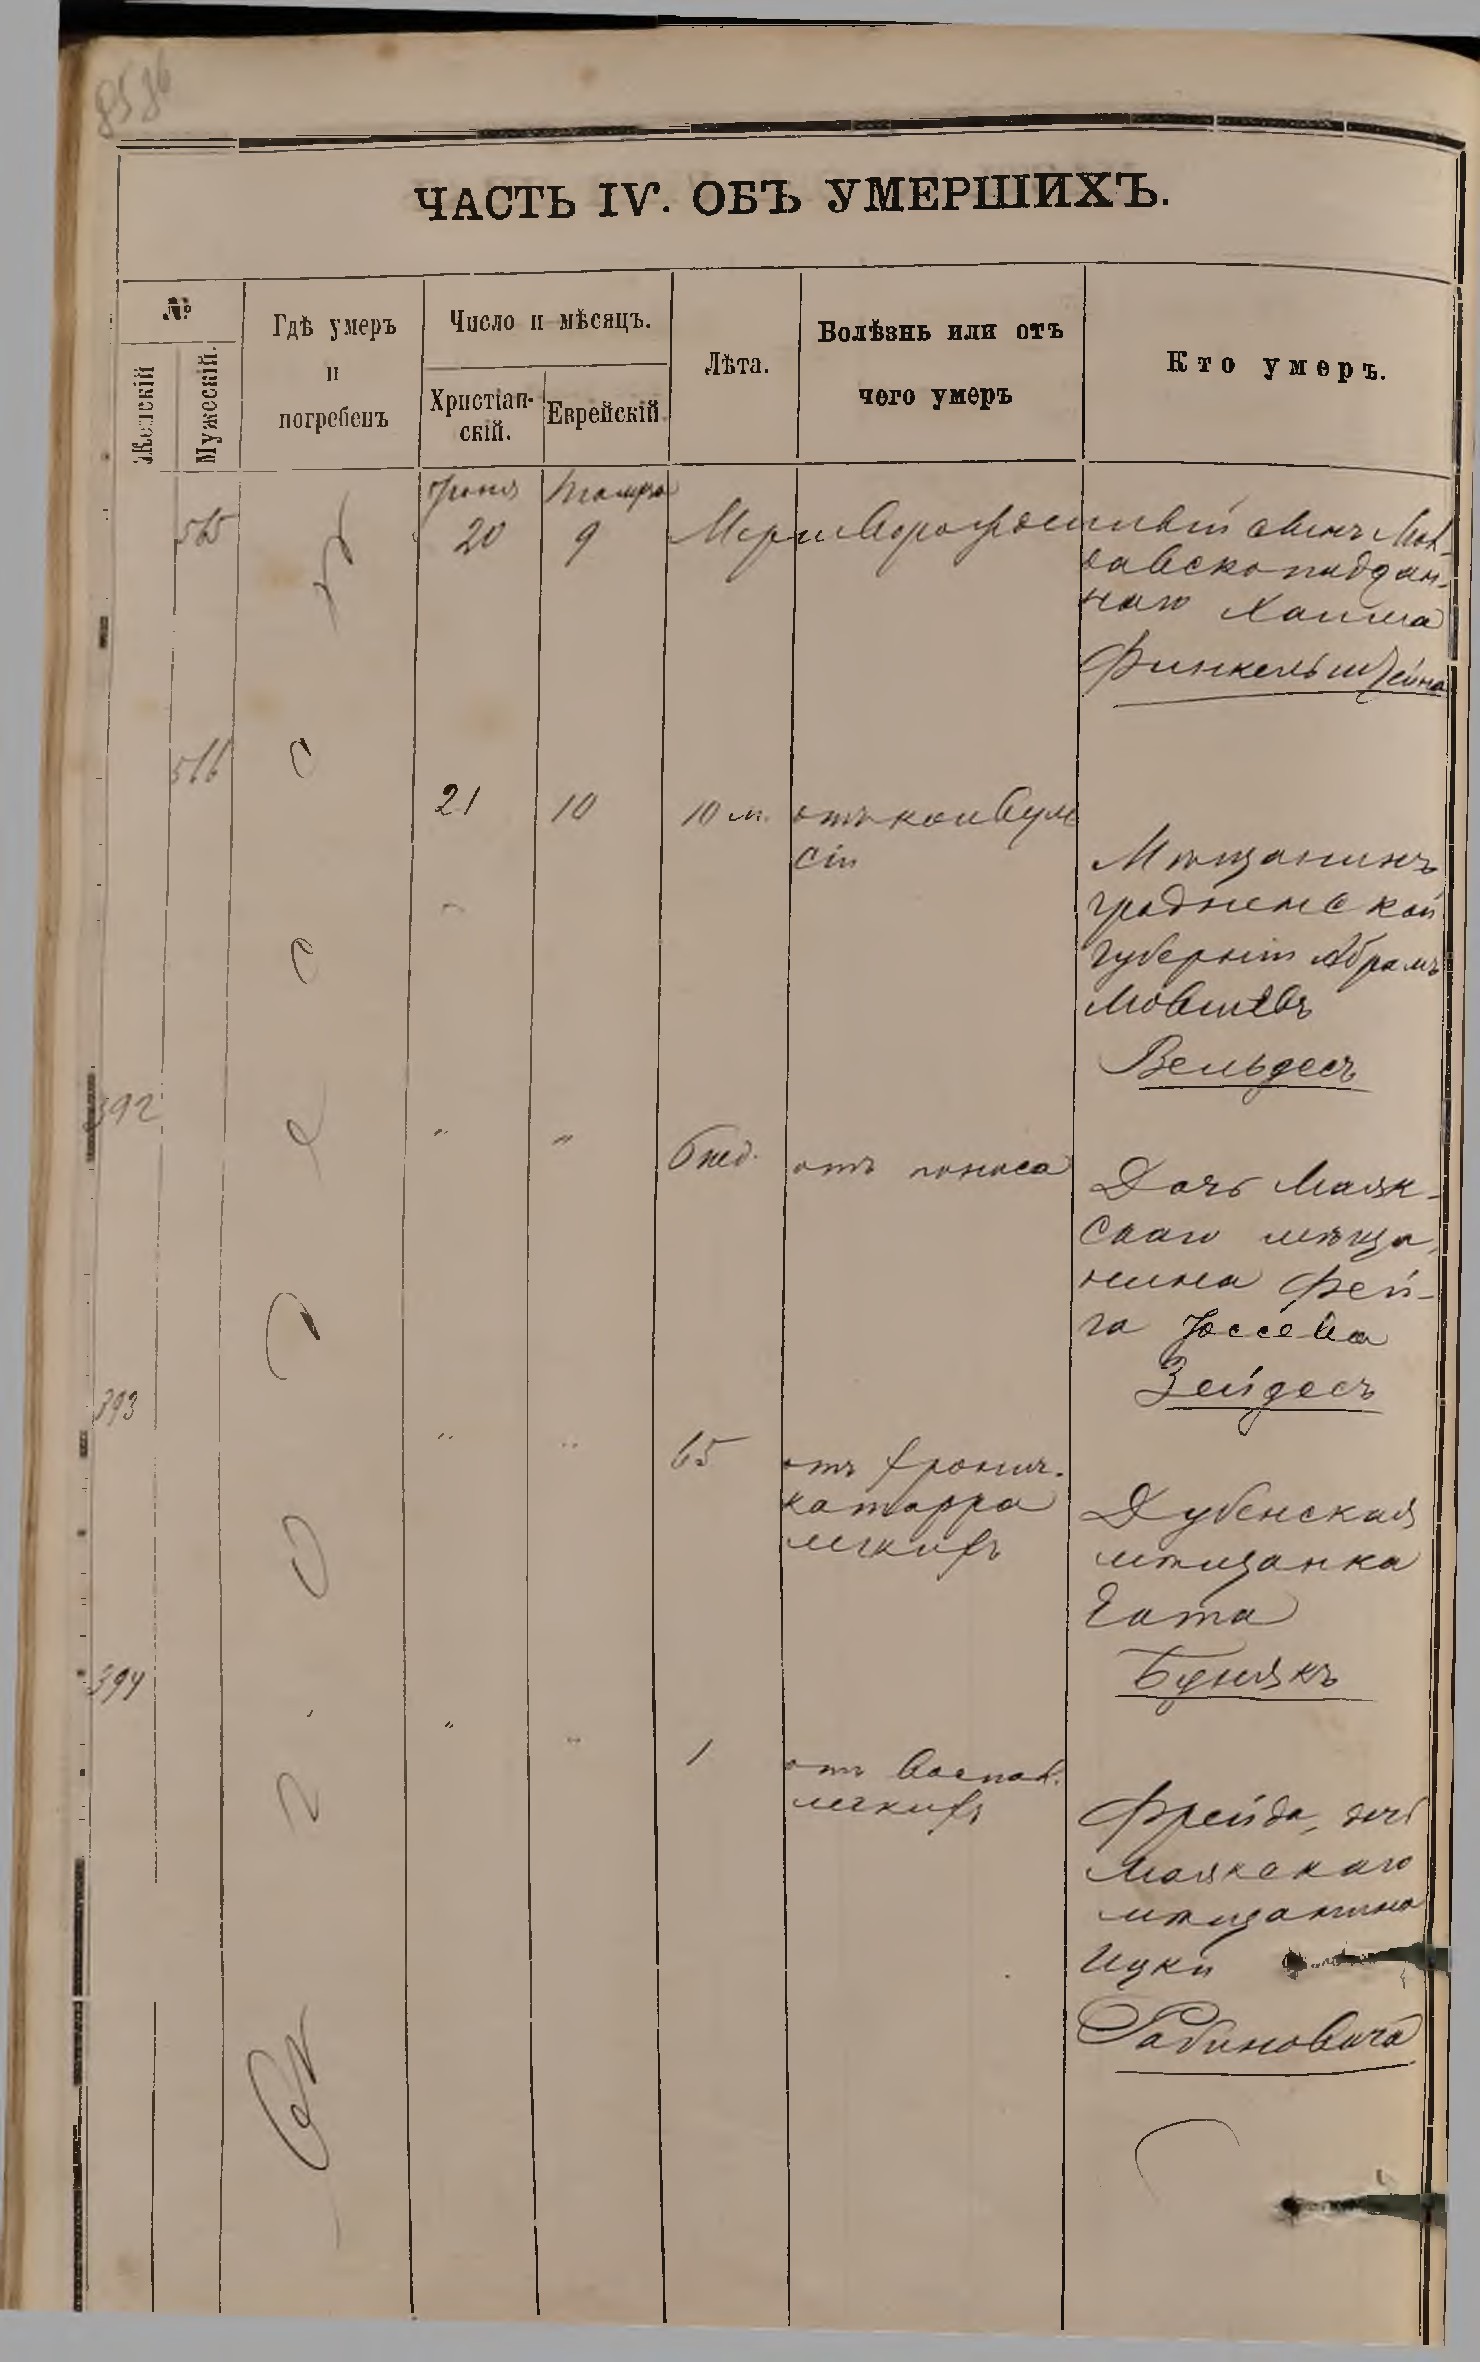 ЧАСТЬ IV. ОБЪ УМЕРШИХЪ.
№
Женскій
Мужескій.
Гдѣ умеръ
и
погребенъ
Число и мѣсяцъ.
Христіан-
скій.
Еврейскій
Лѣта.
Болѣзнь или отъ
чего умеръ
Кто умеръ.
565
Въ г. Одессѣ
Іюня
20
Тамуза
9
Мертворожденный сынъ Мол-
давскоподдан-
наго Хаима
Финкельштейна
566
21
10
10 м.
отъ конвуль
сій
Мѣщанинъ
гродненской
губерніи Абрамъ
Мовшевъ
Вельдесъ
392
"
"
6 нед.
отъ поноса
Дочь Маяк-
скаго мѣща-
нина Фей-
га Іоссева
Зейдесъ
393
"
"
65
отъ хронич.
катарра
легкихъ
Дубенская
мѣщанка
Гита
Бунякъ
394
"
"
1
отъ воспал.
легкихъ
Фрейда, дочь
Маякскаго
мѣщанина
Ицки
Рабиновича